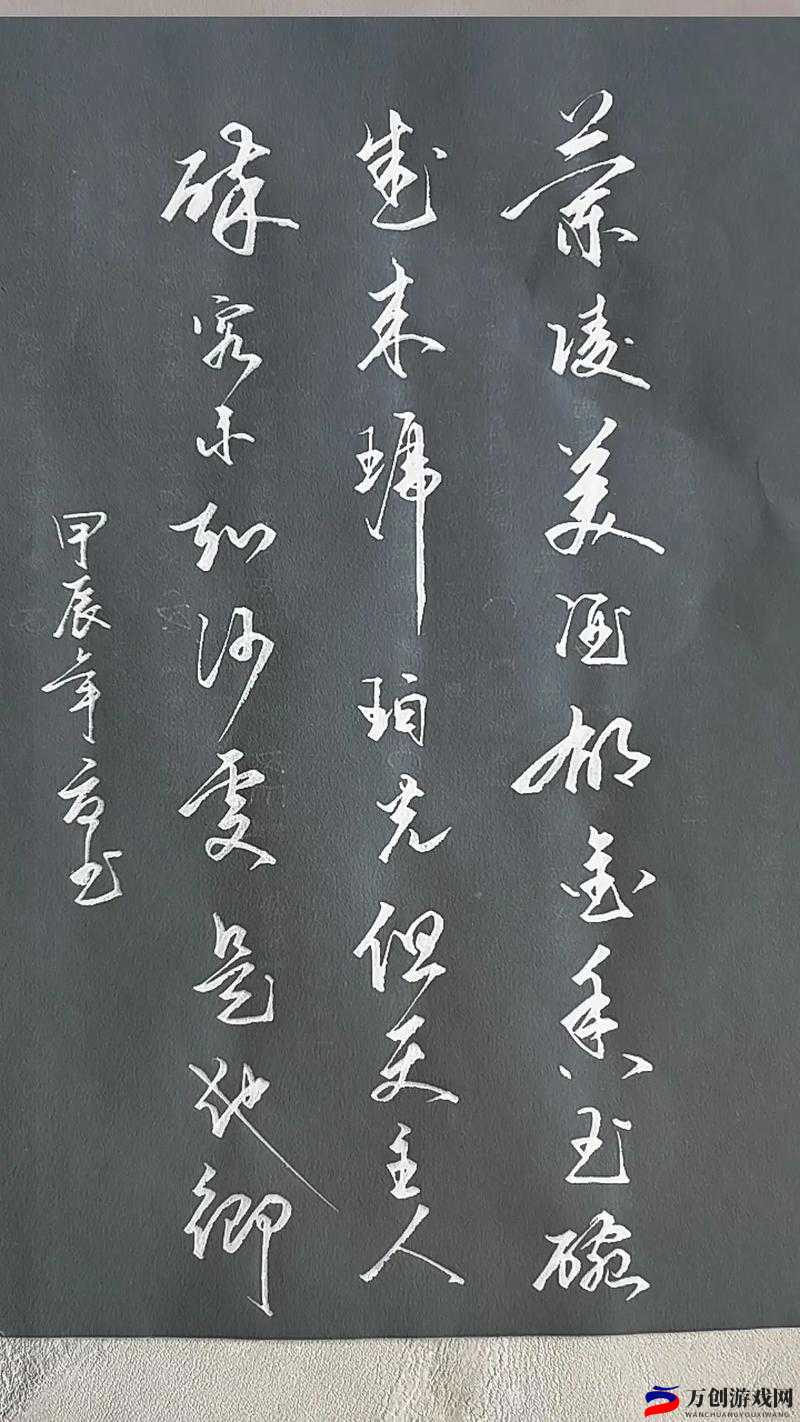 蘭陵美酒郁金香玉碗
盛来琥珀光但使主人
醉客不知何處是他鄉
甲辰年书
万创游戏网
WANCHUANGYOUXIWANG